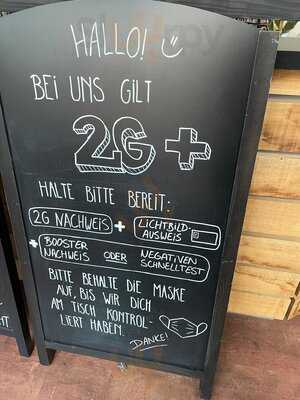 HALLO!
BEI UNS GILT
2G +
HALTE BITTE BEREIT:
2G NACHWEIS + LICHTBILD-
AUSWEIS
+ BOOSTER NACHWEIS ODER NEGATIVEN SCHNELLTEST
BITTE BEHALTE DIE MASKE
AUF, BIS WIR DICH
AM TISCH KONTROL-
LIERT HABEN.
DANKE!